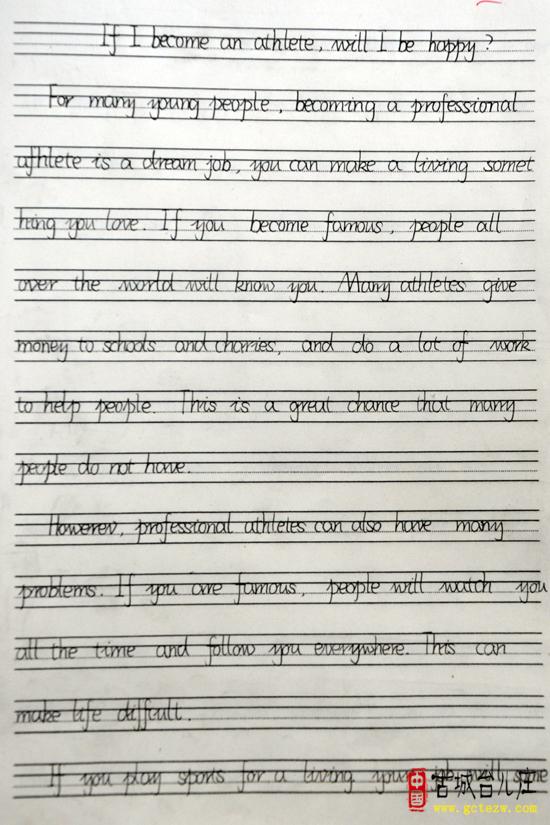 If I become an athlete, will I be happy?
For many young people, becoming a professional
athlete is a dream job, you can make a living somet
hing you love. If you become famous, people all
over the world will know you. Many athletes give
money to schools and charries, and do a lot of work
to help people. This is a great chance that many
people do not have.
However, professional athletes can also have many
problems. If you are famous, people will watch you
all the time and follow you everywhere. This can
make life difficult.
If you play sports for a living your job will
中国
www.gctezw.com